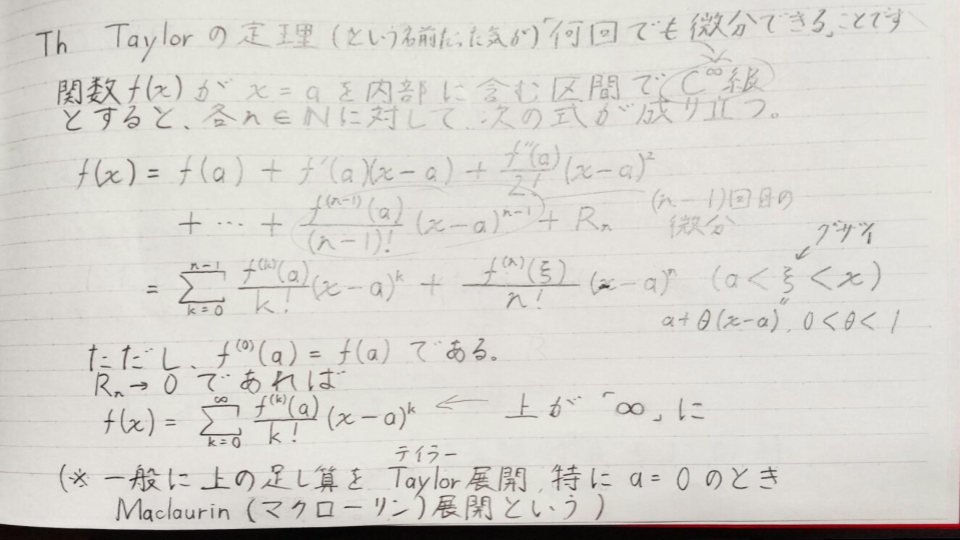 Th Taylorの定理(という名前だった気が)「何回でも微分できる」ことです
関数f(x)がx=aを内部に含む区間でC^∞級
とすると、各n∈Nに対して、次の式が成り立つ。
f(x) = f(a) + f'(a)(x-a) + f''(a)/2! (x-a)^2
+ … + f^(n-1)(a)/(n-1)! (x-a)^(n-1) + R_n (n-1)回目の
微分
グザイ
= Σ_{k=0}^{n-1} f^(k)(a)/k! (x-a)^k + f^(n)(ξ)/n! (x-a)^n (a<ξ<x)
〃
a+θ(x-a), 0<θ<1
ただし、f^(0)(a) = f(a)である。
R_n→0であれば
f(x) = Σ_{k=0}^{∞} f^(k)(a)/k! (x-a)^k ← 上が「∞」に
テイラー
(※一般に上の足し算をTaylor展開,特にa=0のとき
Maclaurin(マクローリン)展開という)